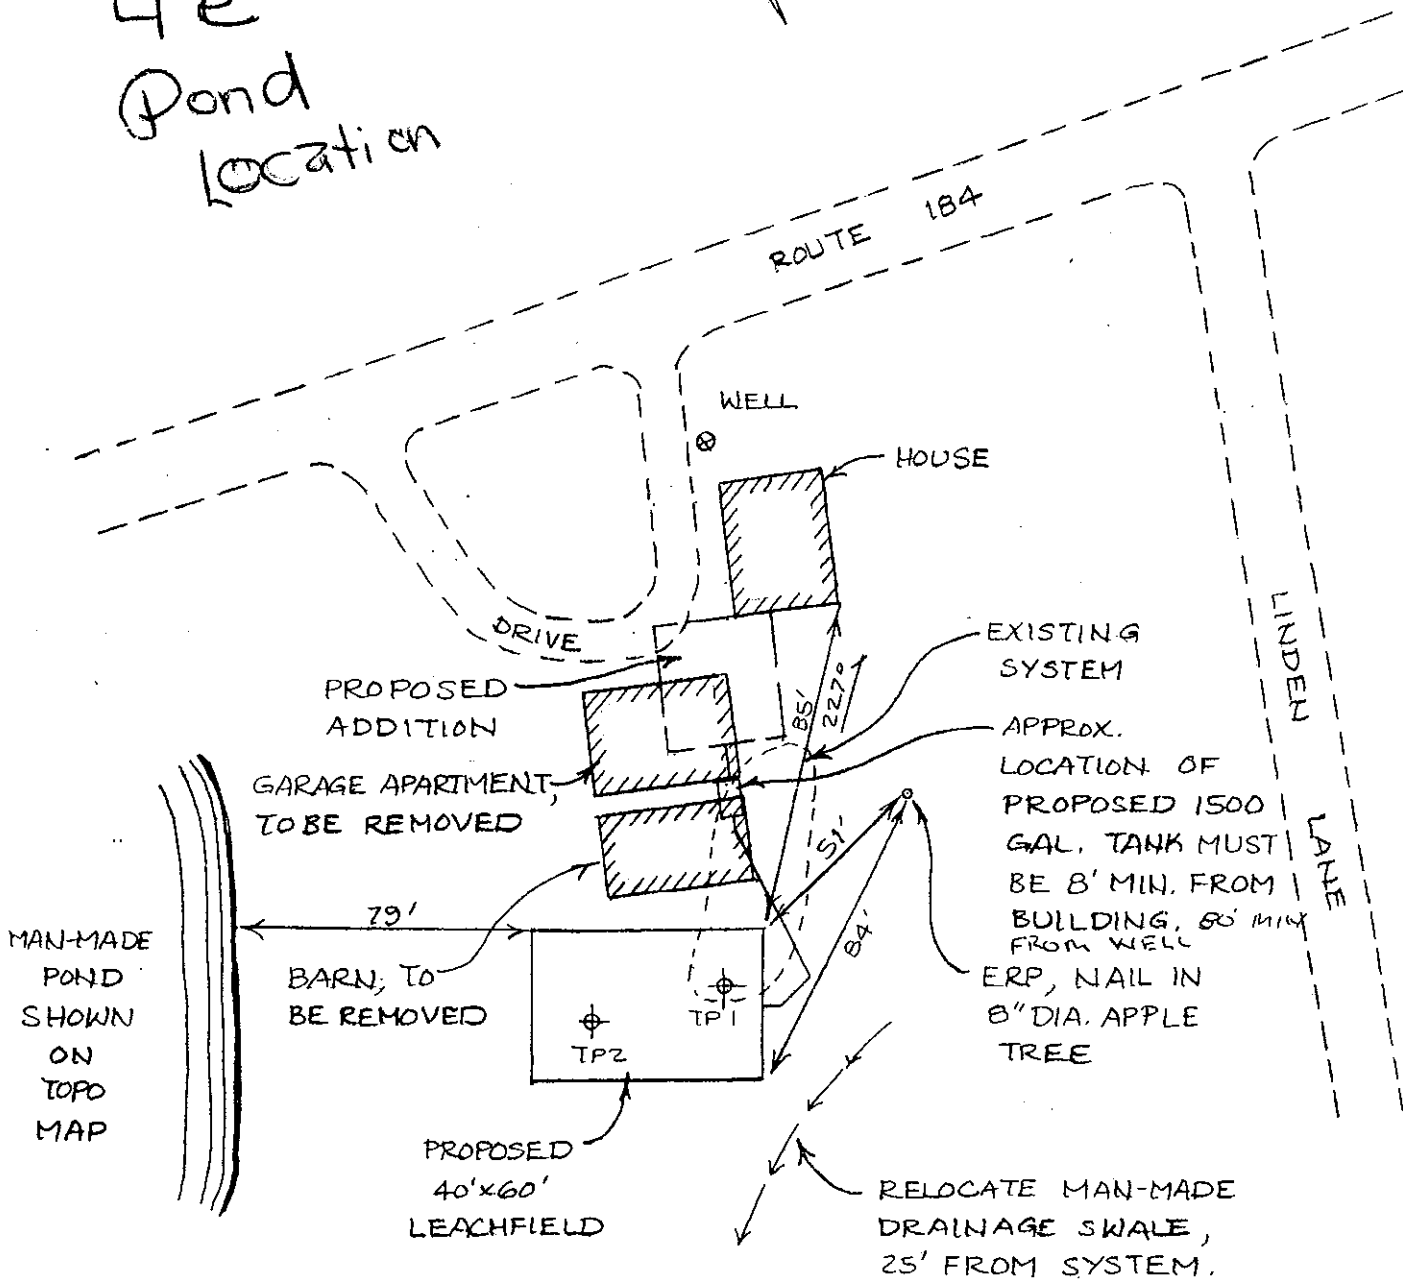 4e
Pond
Location
ROUTE 184
WELL
HOUSE
DRIVE
EXISTING
SYSTEM
PROPOSED
ADDITION
85'
227°
LINDEN
LANE
APPROX.
LOCATION OF
PROPOSED 1500
GAL. TANK MUST
BE 8' MIN. FROM
BUILDING. 80' MIN
FROM WELL
GARAGE APARTMENT,
TO BE REMOVED
51'
79'
84'
MAN-MADE
POND
SHOWN
ON
TOPO
MAP
BARN; TO
BE REMOVED
TP1
TP2
ERP, NAIL IN
8" DIA. APPLE
TREE
PROPOSED
40'x60'
LEACHFIELD
RELOCATE MAN-MADE
DRAINAGE SWALE,
25' FROM SYSTEM.